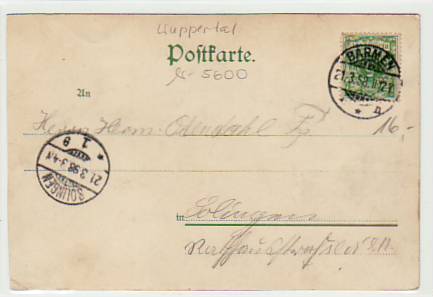 Wuppertal
Postkarte.
5600
BARMEN
21.3.98
* a
An
Herrn Herm. Odendahl
16,-
* 1 e
21.3.98.3-4.N
SOLINGEN
in Solingen